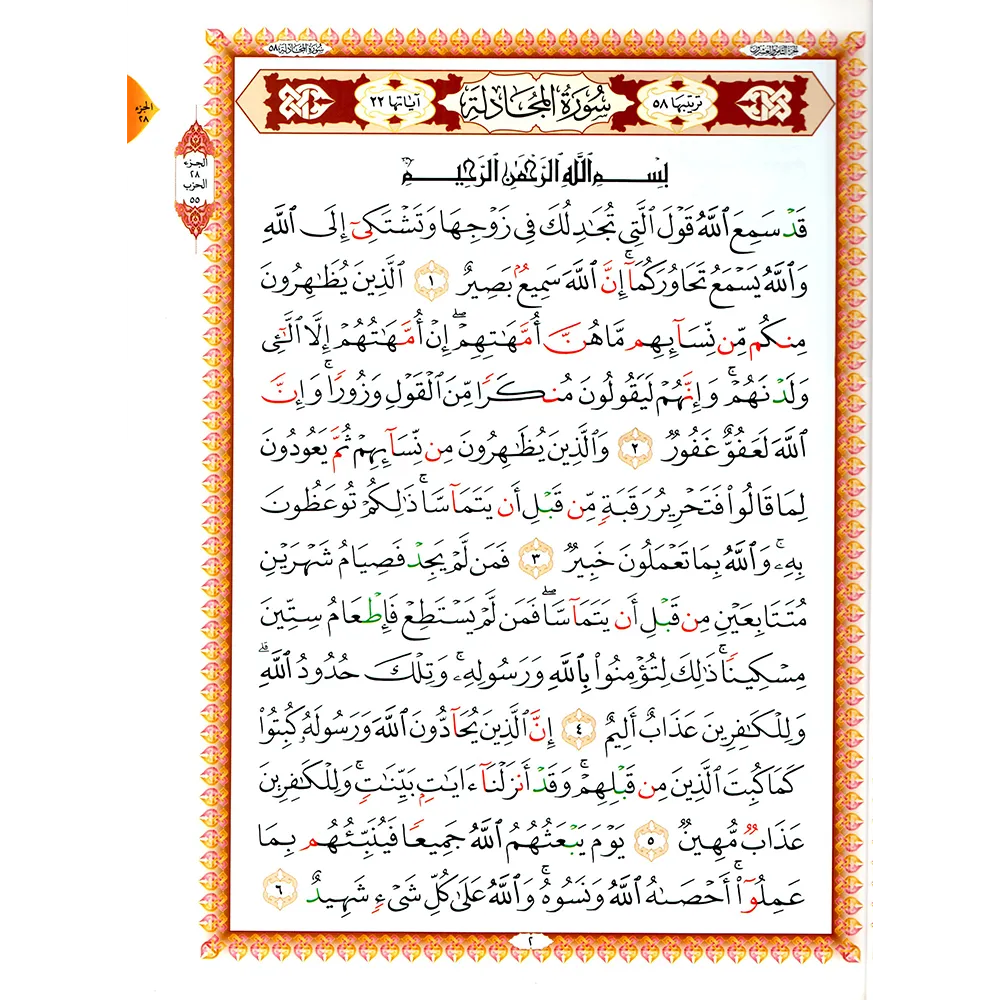 سورة المجادلة ٥٨
الجزء الثامن والعشرون
الجزء
٢٨
الجزء
٢٨
الحزب
٥٥
ترتيبها ٥٨
سُورَةُ المُجَادلة
آياتها ٢٢
بِسْمِ ٱللَّهِ ٱلرَّحْمَٰنِ ٱلرَّحِيمِ
قَدْ سَمِعَ ٱللَّهُ قَوْلَ ٱلَّتِي تُجَٰدِلُكَ فِي زَوْجِهَا وَتَشْتَكِيٓ إِلَى ٱللَّهِ
وَٱللَّهُ يَسْمَعُ تَحَاوُرَكُمَآۚ إِنَّ ٱللَّهَ سَمِيعُۢ بَصِيرٌ ١ ٱلَّذِينَ يُظَٰهِرُونَ
مِنكُم مِّن نِّسَآئِهِم مَّا هُنَّ أُمَّهَٰتِهِمْۖ إِنْ أُمَّهَٰتُهُمْ إِلَّا ٱلَّٰٓـِٔي
وَلَدْنَهُمْۚ وَإِنَّهُمْ لَيَقُولُونَ مُنكَرًا مِّنَ ٱلْقَوْلِ وَزُورًاۚ وَإِنَّ
ٱللَّهَ لَعَفُوٌّ غَفُورٌ ٢ وَٱلَّذِينَ يُظَٰهِرُونَ مِن نِّسَآئِهِمْ ثُمَّ يَعُودُونَ
لِمَا قَالُوا۟ فَتَحْرِيرُ رَقَبَةٍ مِّن قَبْلِ أَن يَتَمَآسَّاۚ ذَٰلِكُمْ تُوعَظُونَ
بِهِۦۚ وَٱللَّهُ بِمَا تَعْمَلُونَ خَبِيرٌ ٣ فَمَن لَّمْ يَجِدْ فَصِيَامُ شَهْرَيْنِ
مُتَتَابِعَيْنِ مِن قَبْلِ أَن يَتَمَآسَّاۖ فَمَن لَّمْ يَسْتَطِعْ فَإِطْعَامُ سِتِّينَ
مِسْكِينًاۚ ذَٰلِكَ لِتُؤْمِنُوا۟ بِٱللَّهِ وَرَسُولِهِۦۚ وَتِلْكَ حُدُودُ ٱللَّهِۗ
وَلِلْكَٰفِرِينَ عَذَابٌ أَلِيمٌ ٤ إِنَّ ٱلَّذِينَ يُحَآدُّونَ ٱللَّهَ وَرَسُولَهُۥ كُبِتُوا۟
كَمَا كُبِتَ ٱلَّذِينَ مِن قَبْلِهِمْۚ وَقَدْ أَنزَلْنَآ ءَايَٰتٍۭ بَيِّنَٰتٍۚ وَلِلْكَٰفِرِينَ
عَذَابٌ مُّهِينٌ ٥ يَوْمَ يَبْعَثُهُمُ ٱللَّهُ جَمِيعًا فَيُنَبِّئُهُم بِمَا
عَمِلُوٓا۟ۚ أَحْصَىٰهُ ٱللَّهُ وَنَسُوهُۚ وَٱللَّهُ عَلَىٰ كُلِّ شَيْءٍ شَهِيدٌ ٦
٢